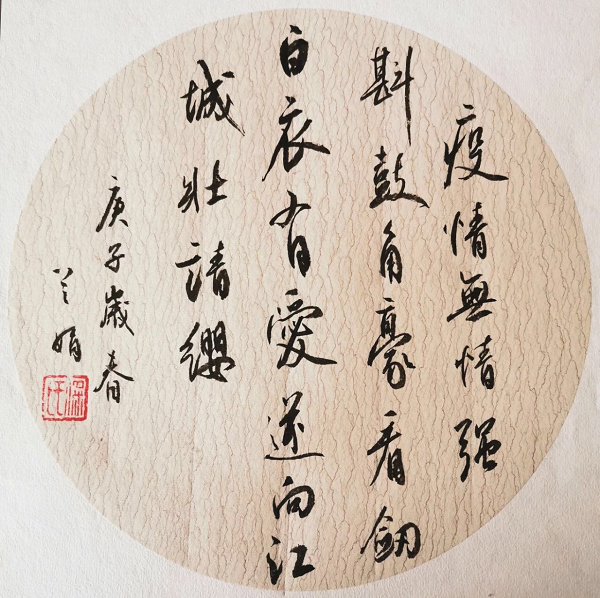 疫情無情強
斟鼓角豪看劔
白衣有愛逆向江
城壯請纓
庚子歲春
兰娟